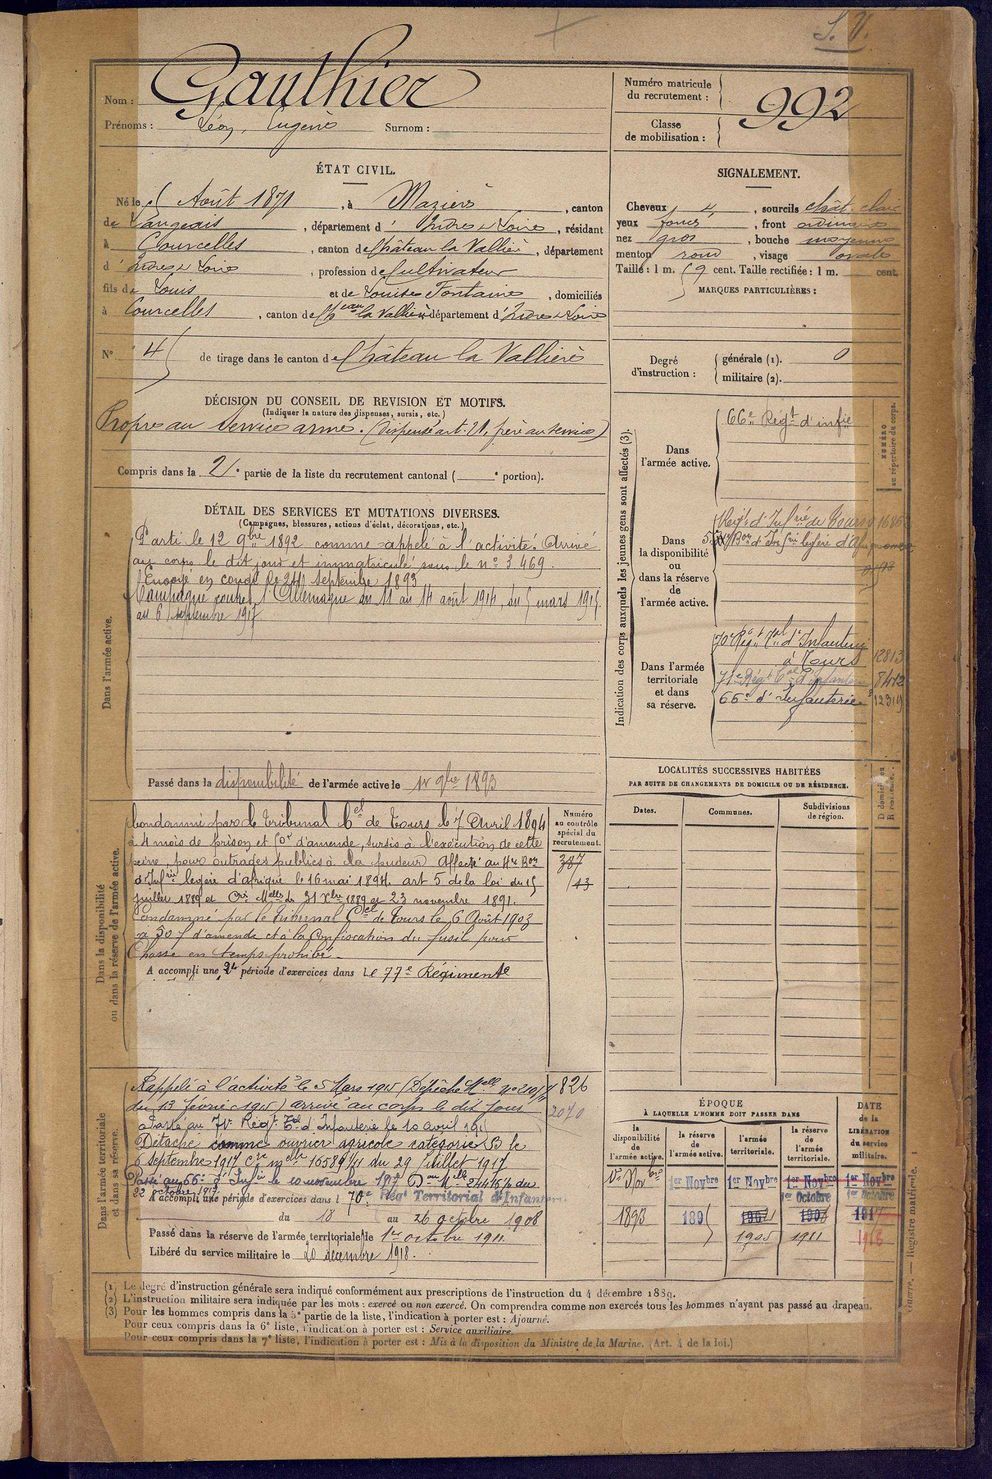 S. U.
Nom : Gauthier
Prénoms : Léon, Eugène Surnom :
Numéro matricule du recrutement : 992
Classe de mobilisation :
ÉTAT CIVIL.
Né le 5 Août 1871, à Mazière, canton
de Langeais, département d' Indre et Loire, résidant
à Courcelles, canton de Château la Vallière, département
d' Indre et Loire, profession de Cultivateur
fils de Louis et de Louise Fontaine, domiciliés
à Courcelles, canton de Ch eau la Vallière département d' Indre et Loire
N° 45 de tirage dans le canton de Château la Vallière
SIGNALEMENT.
Cheveux , sourcils chât. clair
yeux foncé , front ordinaire
nez gros , bouche moyenne
menton rond , visage ovale
Taille : 1 m. 59 cent. Taille rectifiée : 1 m. cent.
MARQUES PARTICULIÈRES :
Degré d'instruction : générale (1). 0
militaire (2).
DÉCISION DU CONSEIL DE REVISION ET MOTIFS.
(Indiquer la nature des dispenses, sursis, etc.)
Propre au service armé. (Dispensé art. 21, frère au service)
Compris dans la 2e partie de la liste du recrutement cantonal ( e portion).
DÉTAIL DES SERVICES ET MUTATIONS DIVERSES.
(Campagnes, blessures, actions d'éclat, décorations, etc.)
Dans l'armée active.
Parti le 12 9bre 1892 comme appelé à l'activité. Arrivé
au corps le dit jour et immatriculé sous le n° 3469.
Envoyé en congé le 24 septembre 1893
Campagne contre l'Allemagne du 11 au 14 août 1914, du 5 mars 1915
au 6 septembre 1917
Passé dans la disponibilité de l'armée active le 1er 9bre 1893
Dans la disponibilité ou dans la réserve de l'armée active.
Condamné par le tribunal Cel de Tours le 7 Avril 1894
à 4 mois de prison et 50f d'amende, sursis à l'exécution de cette
peine, pour outrages publics à la pudeur. Affecté au 4e Bon
d'Infrie légère d'afrique le 16 mai 1894. art 5 de la loi du 15
juillet 1889 et Cres Melles des 31 Xbre 1889 et 23 novembre 1891.
Condamné par le tribunal Cel de Tours le 6 Août 1903
à 30f d'amende et à la confiscation du fusil pour
chasse en temps prohibé.
A accompli une 2e période d'exercices dans le 77e Régiment
Numéro au contrôle spécial du recrutement.
387
/43
Dans l'armée territoriale et dans sa réserve.
Rappelé à l'activité le 5 Mars 1915 (Dépêche Melle
du 13 février 1915) arrivé au corps le dit jour
Passé au 71e Régt Tal d'Infanterie le 10 avril 191
Détaché comme ouvrier agricole catégorie B le
6 septembre 1917 Cre melle 16589 du 29 juillet 1917
Passé au 66e d'Infie le 10 novembre 1917 du
22 octobre 1917
A accompli une période d'exercices dans le 70e Régt Territorial d'Infanterie
du 18 au 26 octobre 1908
Passé dans la réserve de l'armée territoriale le 1er octobre 1911
Libéré du service militaire le 20 décembre 1918.
826
2070
Indication des corps auxquels les jeunes gens sont affectés (3).
NUMÉRO au répertoire du corps.
Dans l'armée active.
66e Régt d'infie
Dans la disponibilité ou dans la réserve de l'armée active.
Régt d'Infrie de Tours
Bon d'Infrie légère d'Afrique
Dans l'armée territoriale et dans sa réserve.
70e Régt Tal d'Infanterie à Tours 12813
71e Régt Tal d'Infanterie 8412
66e d'Infanterie 12319
LOCALITÉS SUCCESSIVES HABITÉES
PAR SUITE DE CHANGEMENTS DE DOMICILE OU DE RÉSIDENCE.
Dates. Communes. Subdivisions de région.
ÉPOQUE
À LAQUELLE L'HOMME DOIT PASSER DANS
DATE de la LIBÉRATION du service militaire.
la disponibilité de l'armée active.
la réserve de l'armée active.
l'armée territoriale.
la réserve de l'armée territoriale.
1er Novbre 1er Novbre 1er Novbre 1er Novbre
1er Octobre 1er Octobre
1893 1895 1904 1907 1917
1905 1911 1918
(1) Le degré d'instruction générale sera indiqué conformément aux prescriptions de l'instruction du 4 décembre 1889.
(2) L'instruction militaire sera indiquée par les mots : exercé ou non exercé. On comprendra comme non exercés tous les hommes n'ayant pas passé au drapeau.
(3) Pour les hommes compris dans la 5e partie de la liste, l'indication à porter est : Ajourné.
Pour ceux compris dans la 6e liste, l'indication à porter est : Service auxiliaire.
Pour ceux compris dans la 7e liste, l'indication à porter est : Mis à la disposition du Ministre de la Marine. (Art. 4 de la loi.)
Guerre. — Registre matricule. 1